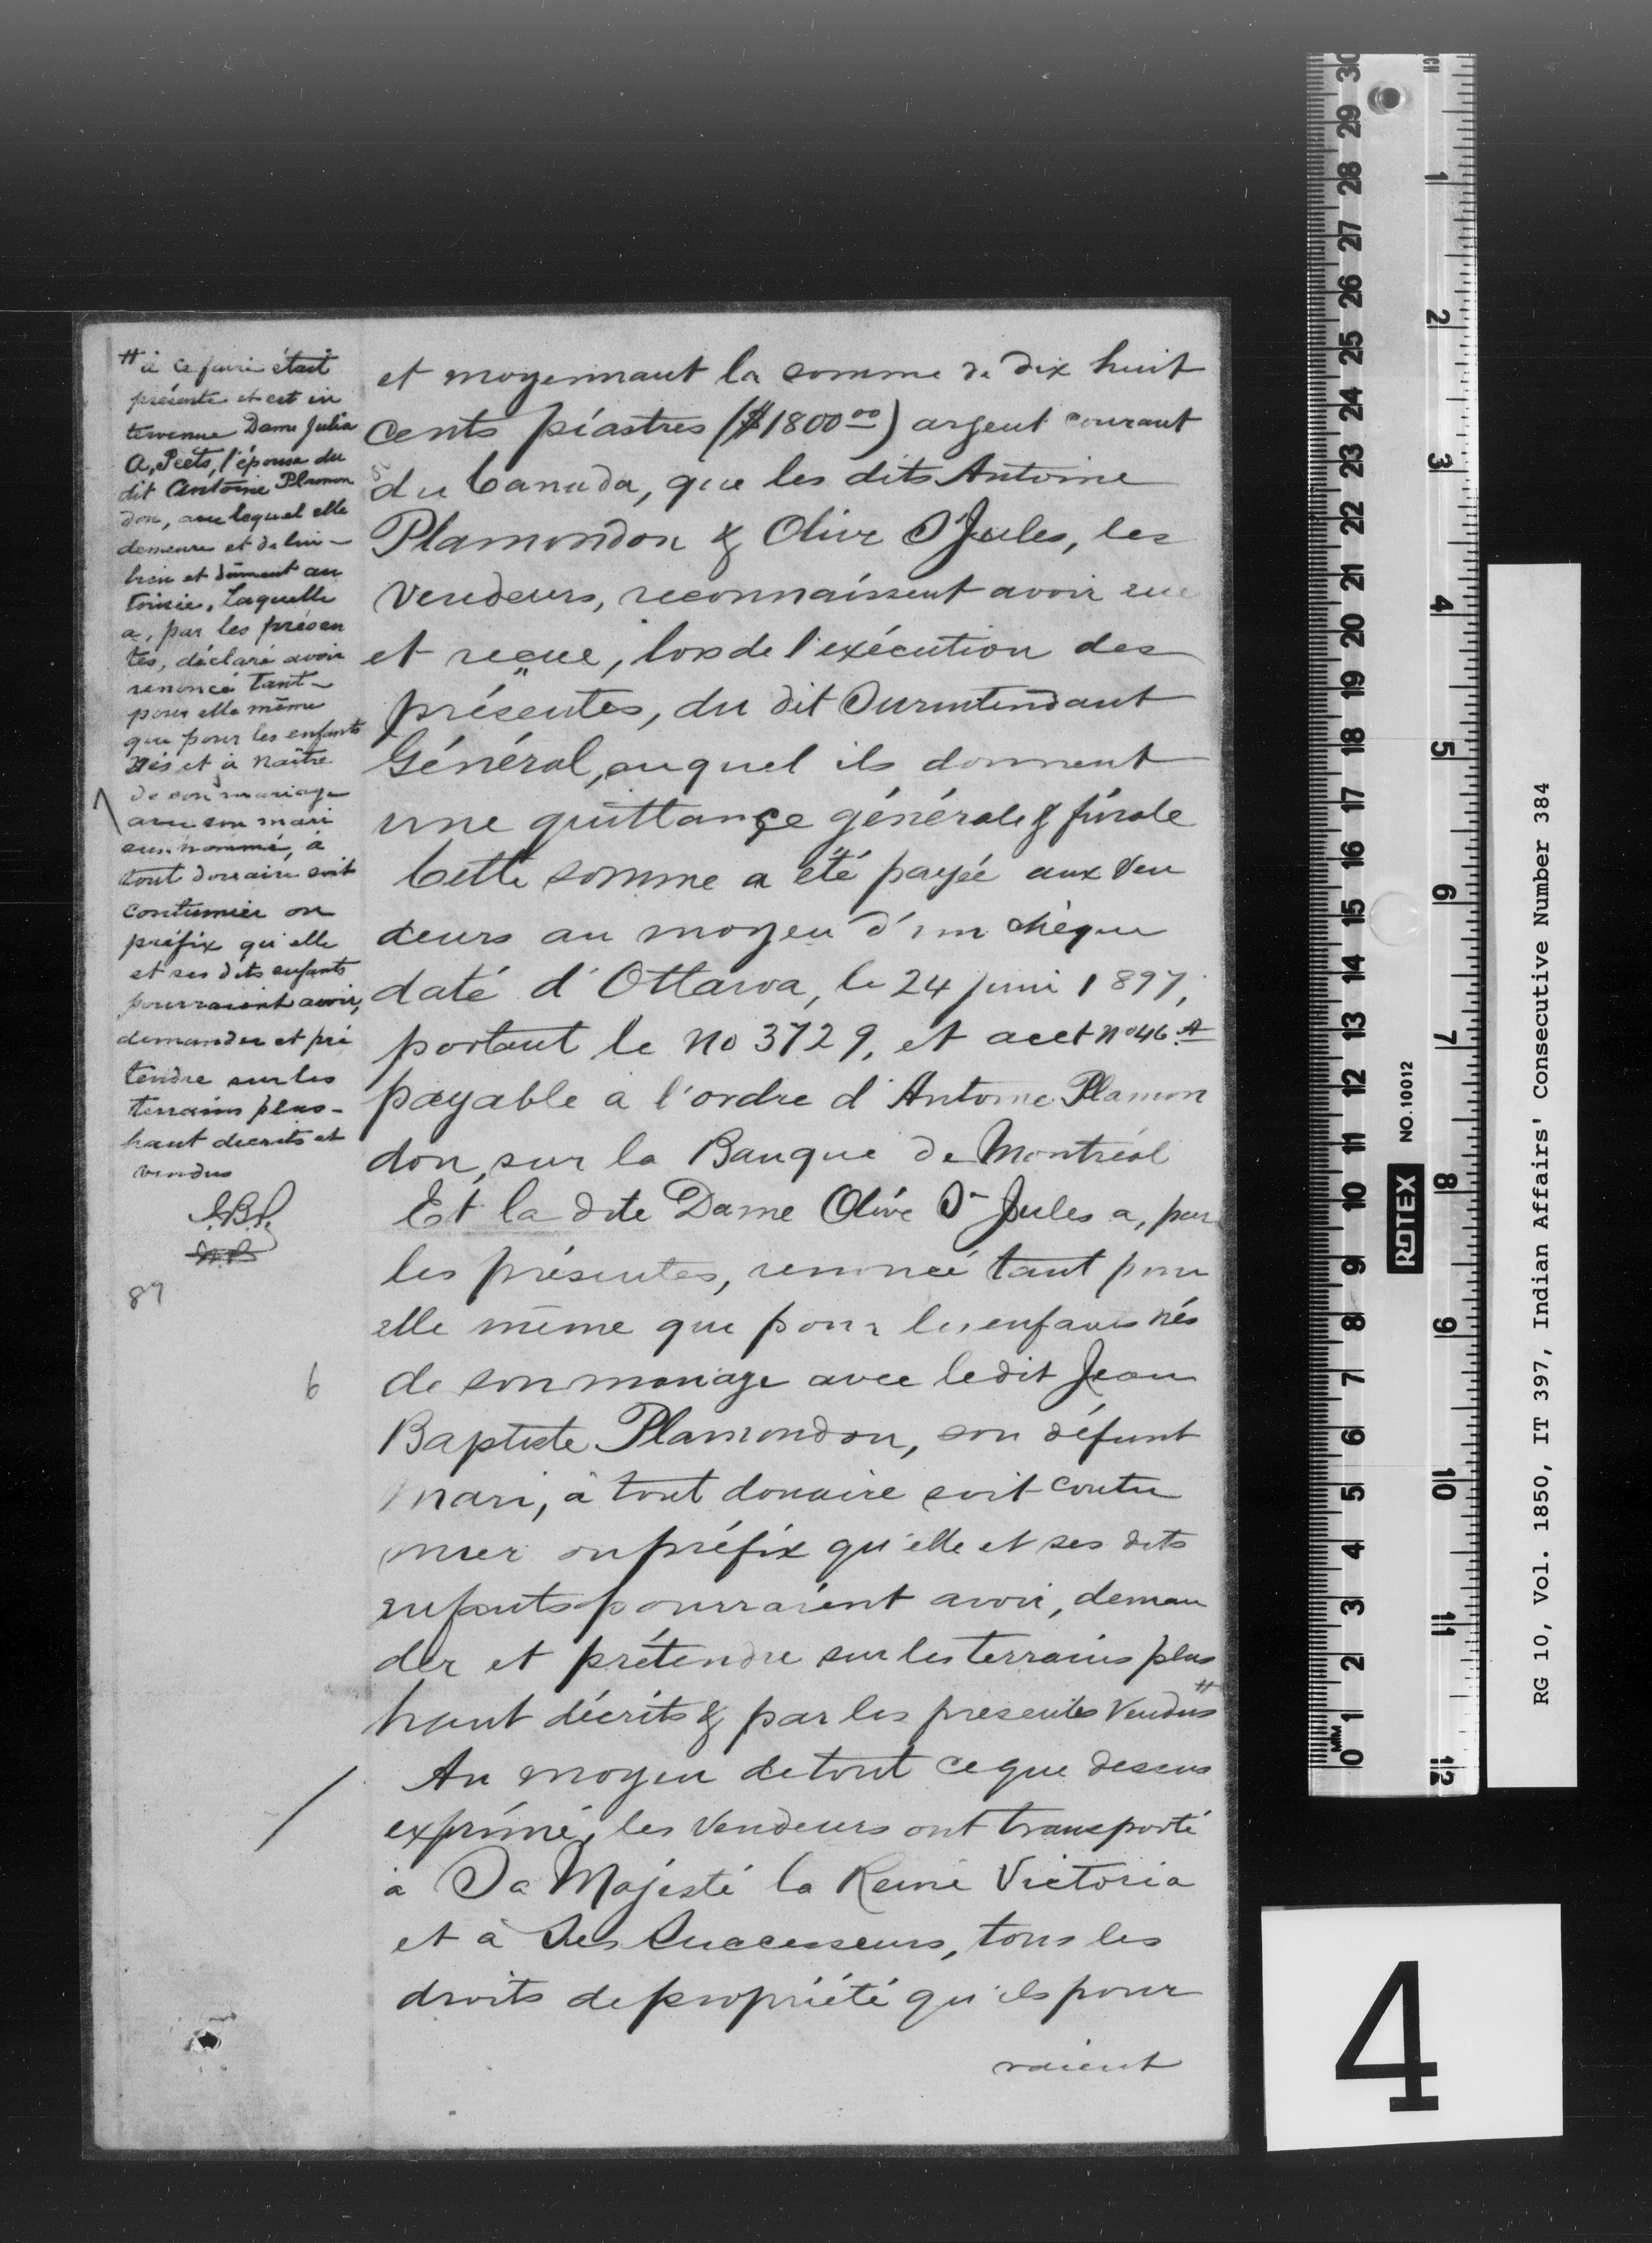 # à ce faire était
présente et est in
tervenue Dame Julia
A, Peets, l'épouse du
dit Antoine Plamon
don, avec lequel elle
demeure et de lui -
bien et dûment au
torisée, Laquelle
a, par les présen
tes, déclaré avoir
renoncé tant -
pour elle même
que pour les enfants
nés et à naître
de son mariage
avec son mari
susnommé, à
tout douaire soit
coutumier ou
préfix qu'elle
et ses dits enfants
pourraient avoir,
demander et pré
tendre sur les
terrains plus -
haut décrits et
vendus
89
6
et moyennant la somme de dix huit
cents piastres ($1800 00) argent courant
du Canada, que les dits Antoine
Plamondon & Olive St Jules, les
vendeurs, reconnaissent avoir eue
et reçue, lors de l'exécution des
présentes, du dit Surintendant
Général, auquel ils donnent
une quittance générale & finale
Cette somme a été payée aux Ven
deurs au moyen d'un chèque
daté d'Ottawa, le 24 juin 1897,
portant le no 3729, et acct no 46 A
payable a l'ordre d'Antoine Plamon
don, sur la Banque de Montréal
Et la dite Dame Olive St Jules a, par
les présentes, renoncé tant pour
elle même que pour les enfants nés
de son mariage avec le dit Jean
Baptiste Plamondon, son défunt
mari, à tout douaire soit coutu
mier ou préfix qu'elle et ses dits
enfants pourraient avoir, deman
der et prétendre sur les terrains plus
haut décrits & par les présentes Vendus #
Au moyen de tout ce que dessus
exprimé, les Vendeurs ont transporté
à Sa Majesté la Reine Victoria
et à Ses Successeurs, tous les
droits de propriété qu'ils pour
raient
30 29 28 27 26 25 24 23 22 21 20 19 18 17 16 15 14 13 12 11 10 9 8 7 6 5 4 3 2 1 0
MM
CM
1 2 3 4 5 6 7 8 9 10 11 12
ROTEX NO. 10012
RG 10, Vol. 1850, IT 397, Indian Affairs' Consecutive Number 384
4